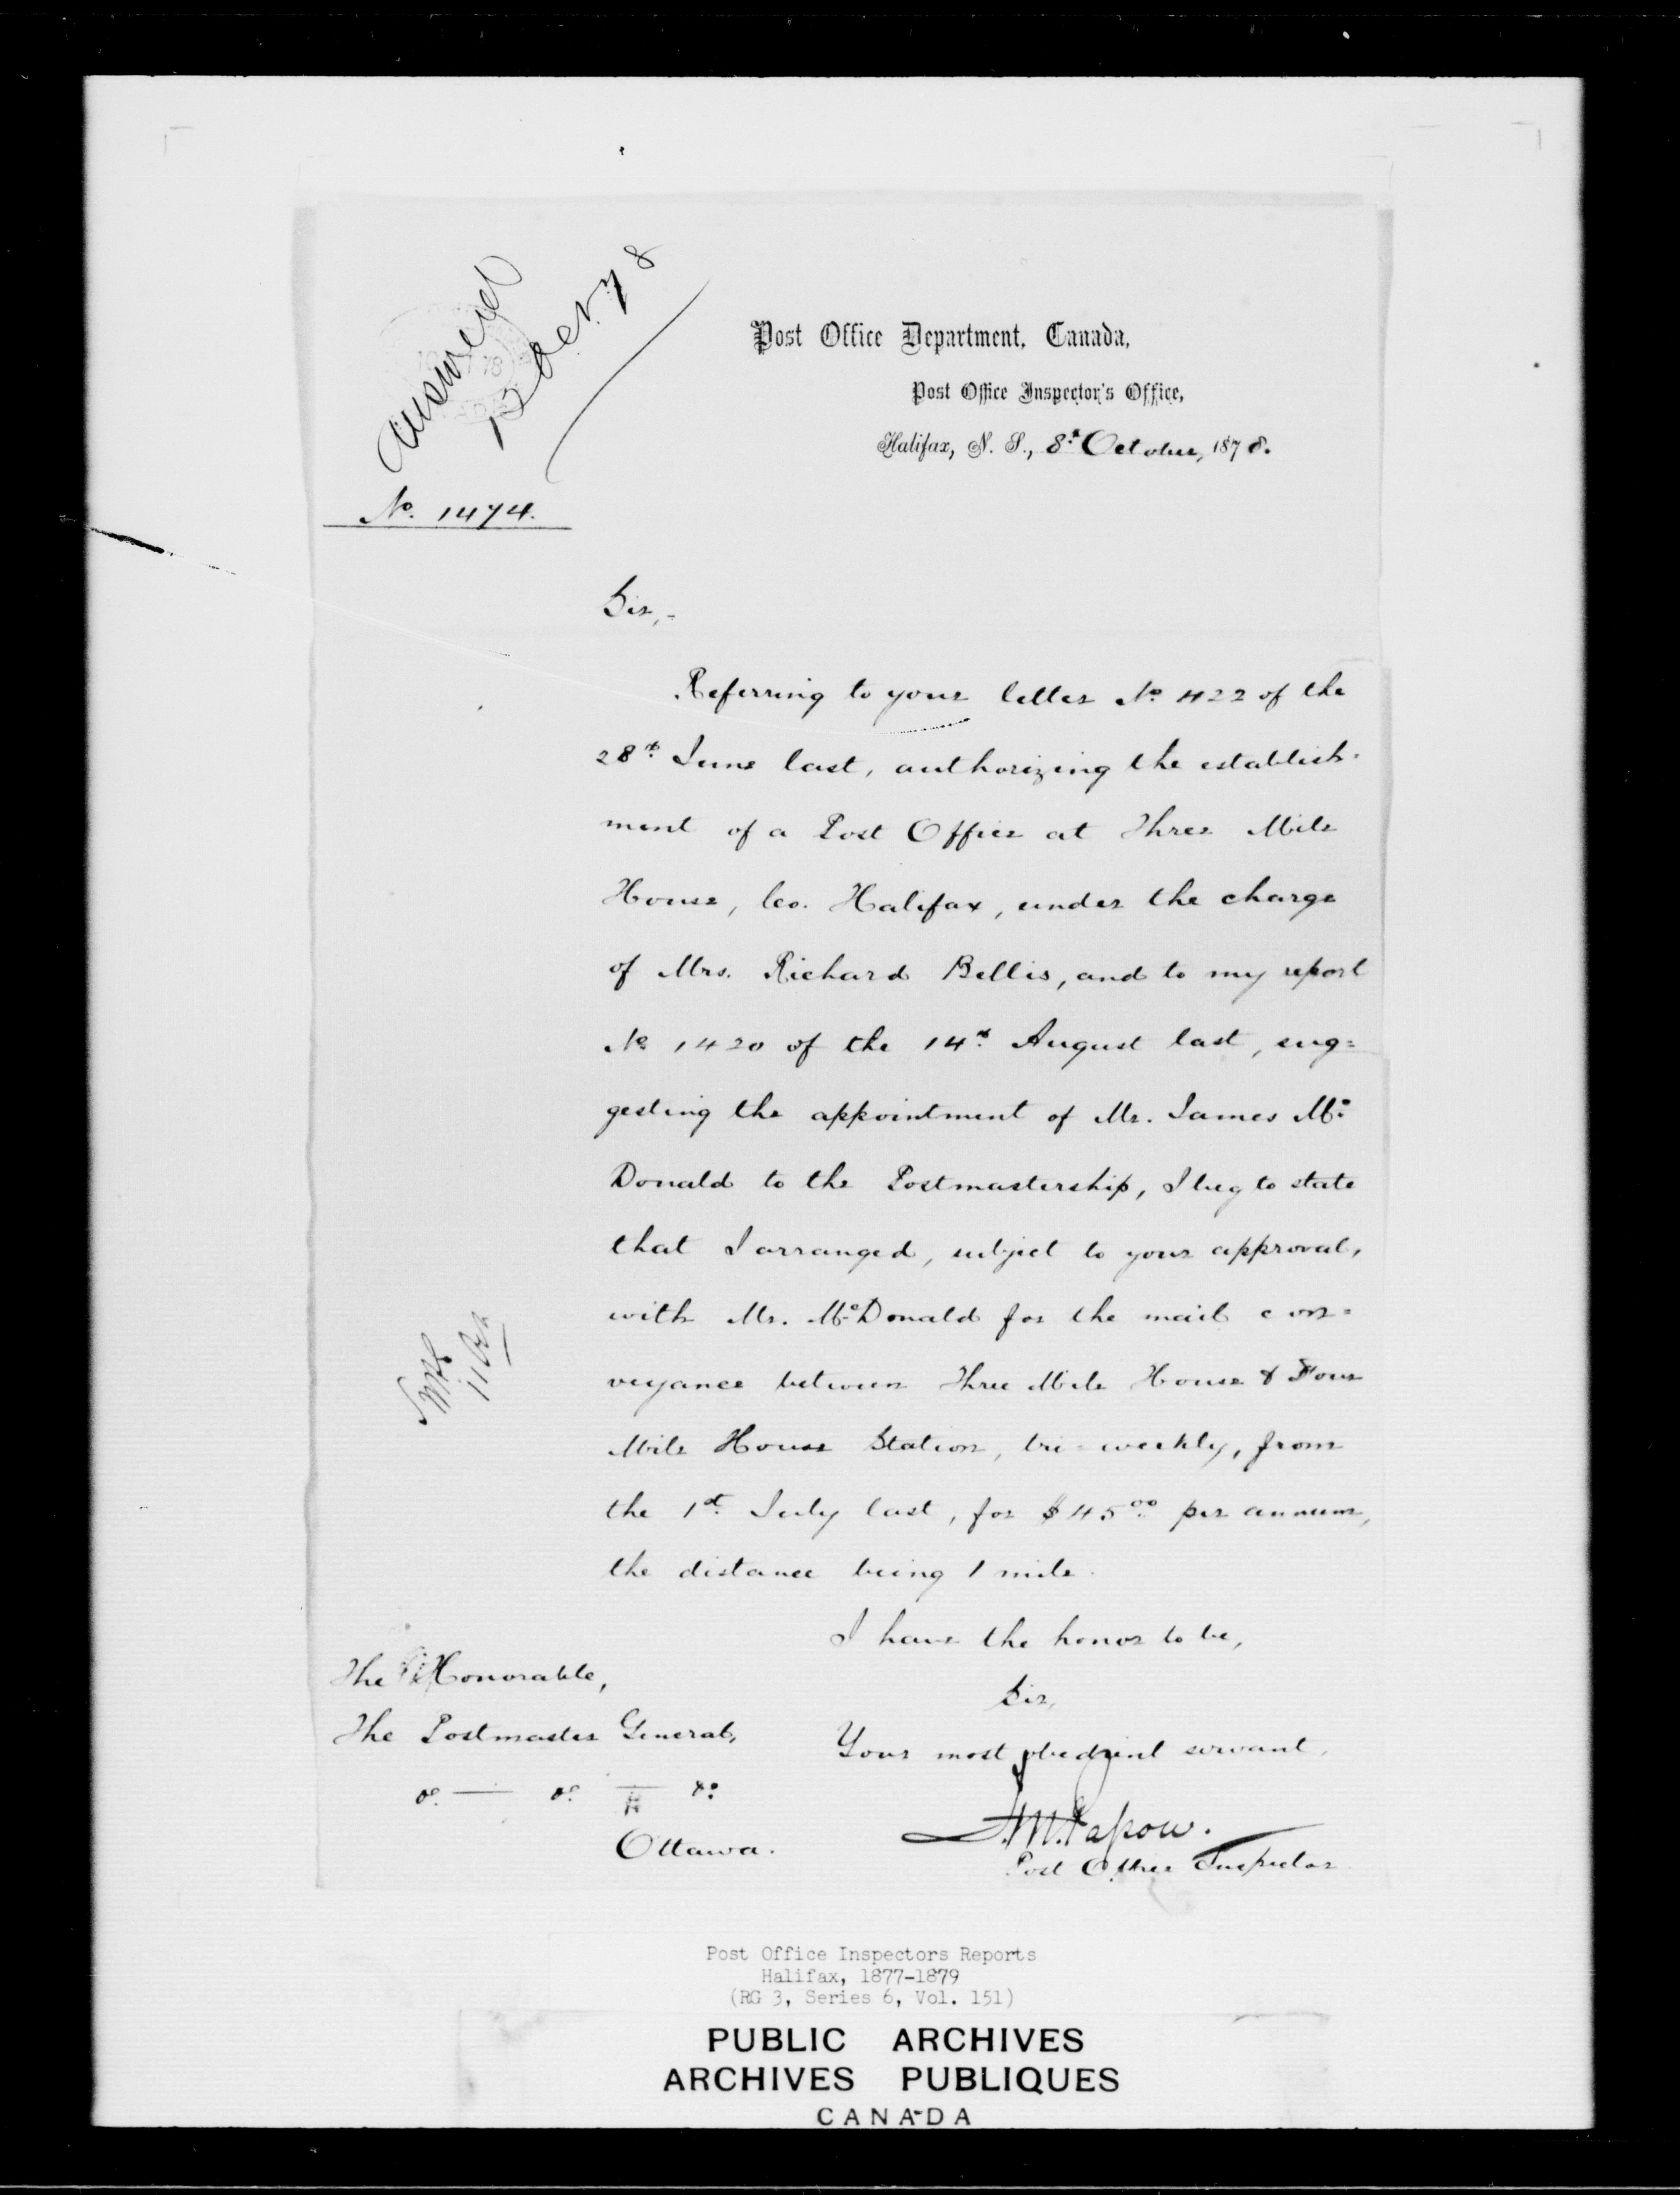 Answered
12 Oct. 78
Post Office Department, Canada,
Post Office Inspector's Office,
Halifax, N. S., 8th October, 1878.
No. 1474.
Sir,-
Referring to your letter No 422 of the
28th June last, authorizing the establish-
ment of a Post Office at Three Mile
House, Co. Halifax, under the charge
of Mrs. Richard Bellis, and to my report
No 1420 of the 14th August last, sug=
gesting the appointment of Mr. James Mc
Donald to the Postmastership, I beg to state
that I arranged, subject to your approval,
with Mr. McDonald for the mail con=
veyance between Three Mile House & Four
Mile House Station, tri=weekly, from
the 1st July last, for $45.00 per annum,
the distance being 1 mile.
I have the honor to be,
Sir,
Your most obedient servant,
Post Office Inspector
The Honorable,
The Postmaster General,
&c. — &c. — &c.
Ottawa.
11 Oct
Post Office Inspectors Reports
Halifax, 1877-1879
(RG 3, Series 6, Vol. 151)
PUBLIC ARCHIVES
ARCHIVES PUBLIQUES
CANADA